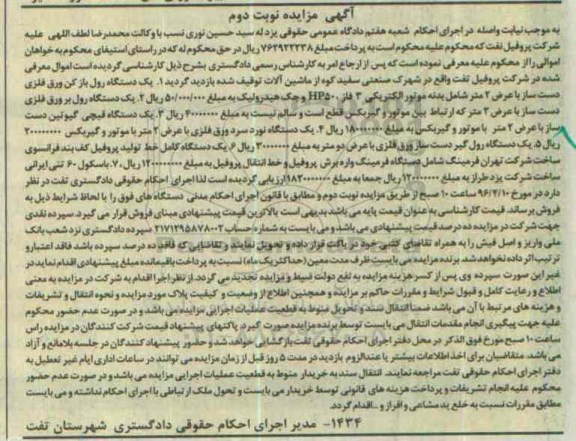 آگهی مزایده نوبت دوم
به موجب نیابت واصله در اجرای احکام شعبه هفتم دادگاه عمومی حقوقی یزد له سید حسین نوری نسب با وکالت محمدرضا لطف اللهی علیه
شرکت پروفیل تفت که محکوم علیه محکوم است به پرداخت مبلغ ۷۶۲۹۲۲۲۳۸ ریال در حق محکوم له که در راستای استیفای محکوم به خواهان
اموالی را از محکوم علیه معرفی نموده است که پس از ارجاع امر به کارشناس رسمی دادگستری بشرح ذیل کارشناسی گردیده است اموال معرفی
شده در شرکت پروفیل تفت واقع در شهرک صنعتی سفید کوه از ماشین آلات توقیف شده بازدید گردید ۱. یک دستگاه رول باز کن ورق فلزی
دست ساز با عرض ۲ متر شامل بدنه موتور الکتریکی ۳ فاز HP۵۰۰ و جک هیدرولیک به مبلغ ۵۰/۰۰۰/۰۰۰ ریال ۲. یک دستگاه رول بر ورق فلزی
دست ساز با عرض ۲ متر که ارتباط بین موتور و گیربکس قطع است و سالم نیست به مبلغ ۴۰۰۰۰۰۰۰ ریال ۳. یک دستگاه قیچی گیوتین دست
ساز با عرض ۲ متر با موتور و گیربکس به مبلغ ۱۸۰۰۰۰۰۰۰ ریال ۴. یک دستگاه نورد سرد ورق فلزی با عرض ۲ متر با موتور و گیربکس
ریال ۵. یک دستگاه رول گیر دست ساز ورق فلزی با عرض دو متر به مبلغ ۳۰۰۰۰۰۰۰ ریال ۶. یک دستگاه کامل خط تولید پروفیل کف بند فرانسوی
ساخت شرکت تهران فرمینگ شامل دستگاه فرمینگ واره برش پروفیل و خط انتقال پروفیل به مبلغ ریال ۷. باسکول ۶۰ تنی ایرانی
ساخت شرکت یزد طراز به مبلغ ۱۲۰۰۰۰۰۰۰ ریال جمعا به مبلغ ریال ارزیابی گردیده است لذا اجرای احکام حقوقی دادگستری تفت در نظر
دارد در مورخ ۹۶/۴/۱۰ ساعت ۱۰ صبح از طریق مزایده نوبت دوم و مطابق با قانون اجرای احکام مدنی دستگاه های فوق را با لحاظ شرایط ذیل به
فروش برساند. قیمت کارشناسی به عنوان قیمت پایه می باشد بدیهی است بالاترین قیمت پیشنهادی مبنای فروش قرار می گیرد. سپرده نقدی
جهت شرکت در مزایده ده درصد قیمت پیشنهادی می باشد و می بایست به شماره حساب ۲۱۷۱۲۹۵۸۷۸۰۰۲ سپرده دادگستری نزد شعب بانک
ملی واریز و اصل فیش را به همراه تقاضای کتبی خود در پاکت قرار داده و تحویل نمایند و تقاضایی که فاقد ده درصد سپرده باشد فاقد اعتبار و
ترتیب اثر داده نخواهد شد. برنده مزایده می بایست ظرف مدت معین (حداکثر یک ماه) نسبت به پرداخت باقیمانده مبلغ پیشنهادی اقدام نماید در
غیر این صورت سپرده وی پس از کسر هزینه مزایده به نفع دولت ضبط و مزایده تجدید می گردد. از نظر اجرا اقدام به شرکت در مزایده به معنی
اطلاع و رعایت کامل و قبول شرایط و مقررات حاکم بر مزایده و همچنین اطلاع از وضعیت و کیفیت پلاک مورد مزایده و نحوه انتقال و تشریفات
و هزینه های مرتبط با آن می باشد ضمنا انتقال سند و تحویل منوط به قطعیت عملیات اجرایی مزایده می باشد و در صورت عدم حضور محکوم
علیه جهت پیگیری انجام مقدمات انتقال می بایست توسط برنده مزایده صورت گیرد. پاکتهای پیشنهاد قیمت شرکت کنندگان در مزایده راس
ساعت ۱۰ صبح مورخ فوق الذکر در محل دفتر اجرای احکام حقوقی تفت بازگشایی خواهد شد و حضور پیشنهاد کنندگان در جلسه بلامانع و آزاد
می باشد. متقاضیان برای اخذ اطلاعات بیشتر یا عندالزوم بازدید در مدت ۵ روز قبل از زمان مزایده می توانند در ساعات اداری ایام غیر تعطیل به
دفتر اجرای احکام حقوقی تفت مراجعه نمایند. انتقال سند به خریدار منوط به قطعیت عملیات اجرایی مزایده می باشد و در صورت عدم حضور
محکوم علیه انجام تشریفات و پرداخت هزینه های قانونی توسط خریدار می بایست و تحویل ملک ارتباطی با اجرای احکام نداشته و می بایست
مطابق مقررات نسبت به خلع ید مشاعی و افراز و ... اقدام گردد.
۱۴۳۴- مدیر اجرای احکام حقوقی دادگستری شهرستان تفت